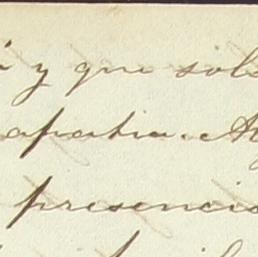 y que sol
apatia. A
presencia